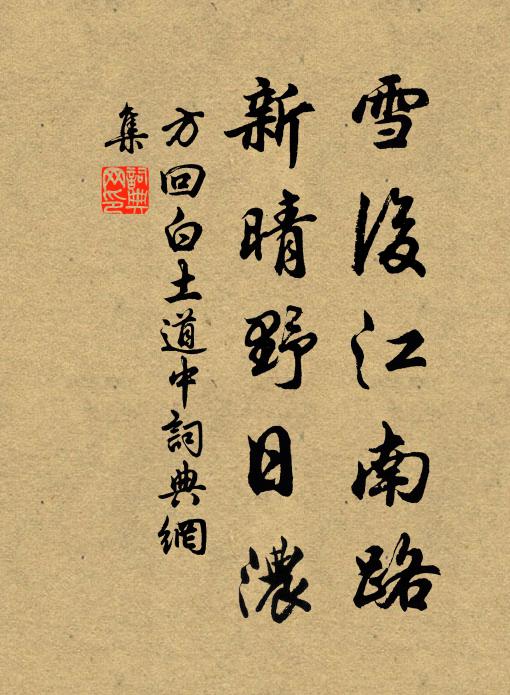 雪後江南路
新晴野日濃
方回白土道中詞典網
集
詞典
网印